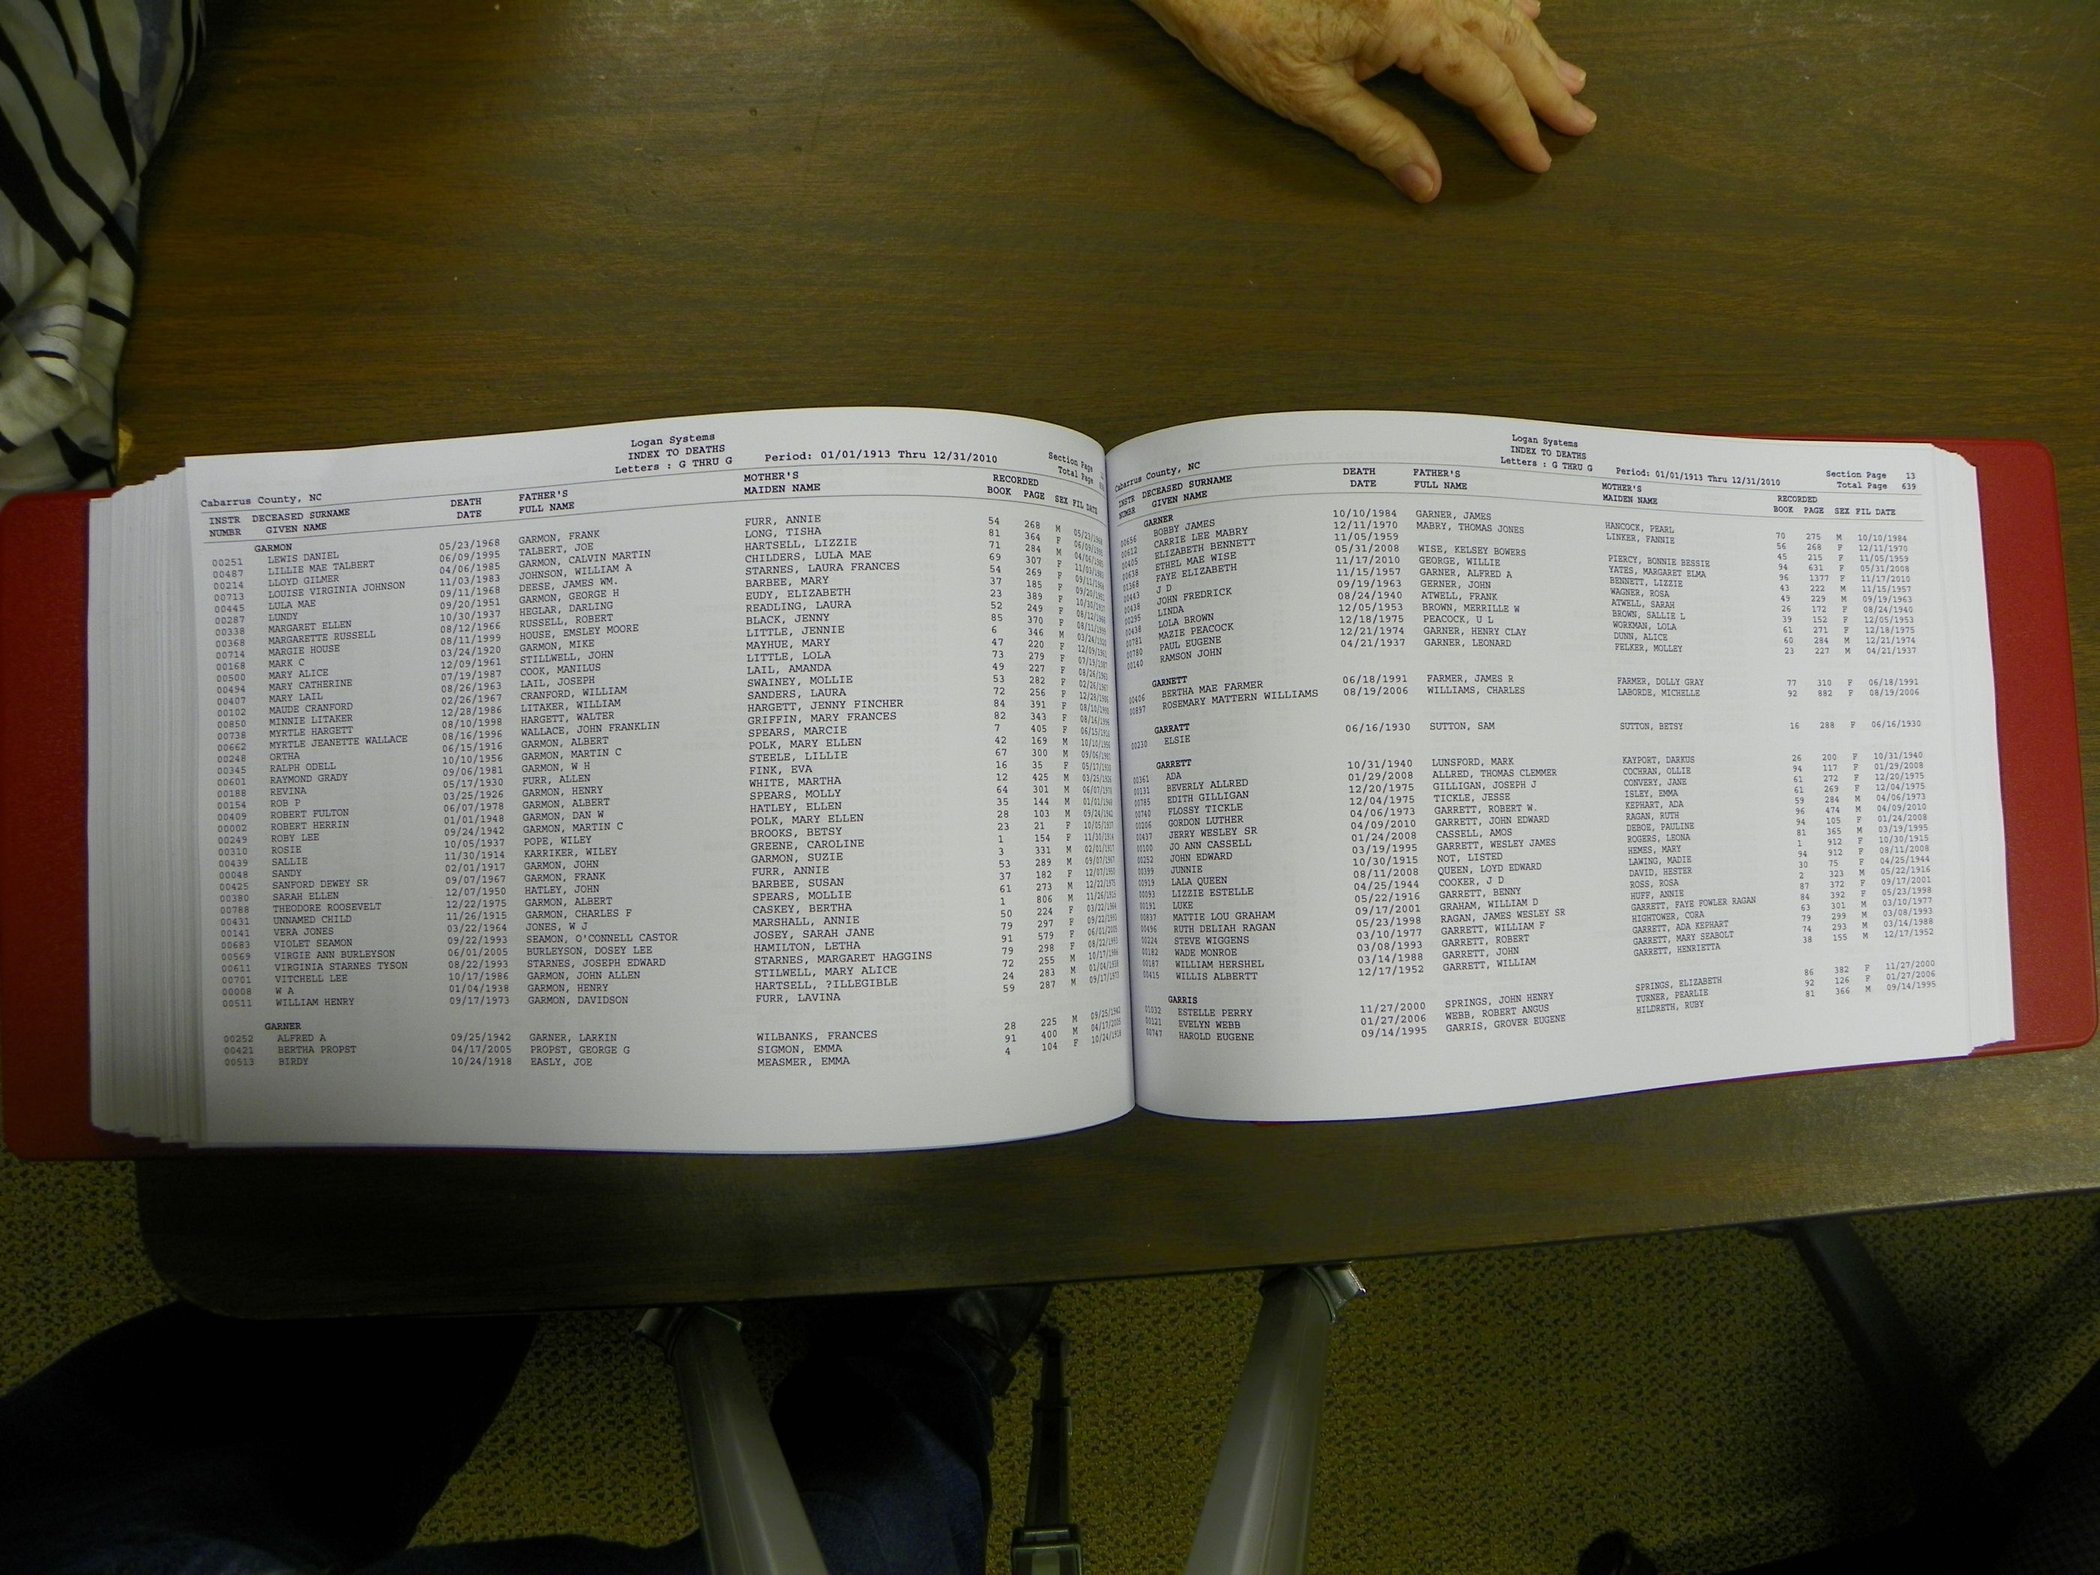 Logan Systems
INDEX TO DEATHS
Letters : G THRU G Period: 01/01/1913 Thru 12/31/2010 Section Page
Cabarrus County, NC Total Page
INSTR DECEASED SURNAME DEATH FATHER'S MOTHER'S RECORDED
NUMBR GIVEN NAME DATE FULL NAME MAIDEN NAME BOOK PAGE SEX FIL DATE
GARMON
00251 LEWIS DANIEL 05/23/1968 GARMON, FRANK FURR, ANNIE 54 268 M 05/23/1968
00487 LILLIE MAE TALBERT 06/09/1995 TALBERT, JOE LONG, TISHA 81 364 F 06/09/1995
00214 LLOYD GILMER 04/06/1985 GARMON, CALVIN MARTIN HARTSELL, LIZZIE 71 284 M 04/06/1985
00713 LOUISE VIRGINIA JOHNSON 11/03/1983 JOHNSON, WILLIAM A CHILDERS, LULA MAE 69 307 F 11/03/1983
00445 LULA MAE 09/11/1968 DEESE, JAMES WM. STARNES, LAURA FRANCES 54 269 F 09/11/1968
00287 LUNDY 09/20/1951 GARMON, GEORGE H BARBEE, MARY 37 185 F 09/20/1951
00338 MARGARET ELLEN 10/30/1937 HEGLAR, DARLING EUDY, ELIZABETH 23 389 F 10/30/1937
00368 MARGARETTE RUSSELL 08/12/1966 RUSSELL, ROBERT READLING, LAURA 52 249 F 08/12/1966
00714 MARGIE HOUSE 08/11/1999 HOUSE, EMSLEY MOORE BLACK, JENNY 85 370 F 08/11/1999
00168 MARK C 03/24/1920 GARMON, MIKE LITTLE, JENNIE 6 346 M 03/24/1920
00500 MARY ALICE 12/09/1961 STILLWELL, JOHN MAYHUE, MARY 47 220 F 12/09/1961
00494 MARY CATHERINE 07/19/1987 COOK, MANILUS LITTLE, LOLA 73 279 F 07/19/1987
00407 MARY LAIL 08/26/1963 LAIL, JOSEPH LAIL, AMANDA 49 227 F 08/26/1963
00102 MAUDE CRANFORD 02/26/1967 CRANFORD, WILLIAM SWAINEY, MOLLIE 53 282 F 02/26/1967
00850 MINNIE LITAKER 12/28/1986 LITAKER, WILLIAM SANDERS, LAURA 72 256 F 12/28/1986
00738 MYRTLE HARGETT 08/10/1998 HARGETT, WALTER HARGETT, JENNY FINCHER 84 391 F 08/10/1998
00662 MYRTLE JEANETTE WALLACE 08/16/1996 WALLACE, JOHN FRANKLIN GRIFFIN, MARY FRANCES 82 343 F 08/16/1996
00248 ORTHA 06/15/1916 GARMON, ALBERT SPEARS, MARCIE 7 405 F 06/15/1916
00345 RALPH ODELL 10/10/1956 GARMON, MARTIN C POLK, MARY ELLEN 42 169 M 10/10/1956
00601 RAYMOND GRADY 09/06/1981 GARMON, W H STEELE, LILLIE 67 300 M 09/06/1981
00188 REVINA 05/17/1930 FURR, ALLEN FINK, EVA 16 35 F 05/17/1930
00154 ROB P 03/25/1926 GARMON, HENRY WHITE, MARTHA 12 425 M 03/25/1926
00409 ROBERT FULTON 06/07/1978 GARMON, ALBERT SPEARS, MOLLY 64 301 M 06/07/1978
00002 ROBERT HERRIN 01/01/1948 GARMON, DAN W HATLEY, ELLEN 35 144 M 01/01/1948
00249 ROBY LEE 09/24/1942 GARMON, MARTIN C POLK, MARY ELLEN 28 103 M 09/24/1942
00310 ROSIE 10/05/1937 POPE, WILEY BROOKS, BETSY 23 21 F 10/05/1937
00439 SALLIE 11/30/1914 KARRIKER, WILEY GREENE, CAROLINE 1 154 F 11/30/1914
00048 SANDY 02/01/1917 GARMON, JOHN GARMON, SUZIE 3 331 M 02/01/1917
00425 SANFORD DEWEY SR 09/07/1967 GARMON, FRANK FURR, ANNIE 53 289 M 09/07/1967
00380 SARAH ELLEN 12/07/1950 HATLEY, JOHN BARBEE, SUSAN 37 182 F 12/07/1950
00788 THEODORE ROOSEVELT 12/22/1975 GARMON, ALBERT SPEARS, MOLLIE 61 273 M 12/22/1975
00431 UNNAMED CHILD 11/26/1915 GARMON, CHARLES F CASKEY, BERTHA 1 806 M 11/26/1915
00141 VERA JONES 03/22/1964 JONES, W J MARSHALL, ANNIE 50 224 F 03/22/1964
00683 VIOLET SEAMON 09/22/1993 SEAMON, O'CONNELL CASTOR JOSEY, SARAH JANE 79 297 F 09/22/1993
00569 VIRGIE ANN BURLEYSON 06/01/2005 BURLEYSON, DOSEY LEE HAMILTON, LETHA 91 579 F 06/01/2005
00611 VIRGINIA STARNES TYSON 08/22/1993 STARNES, JOSEPH EDWARD STARNES, MARGARET HAGGINS 79 298 F 08/22/1993
00701 VITCHELL LEE 10/17/1986 GARMON, JOHN ALLEN STILWELL, MARY ALICE 72 255 M 10/17/1986
00008 W A 01/04/1938 GARMON, HENRY HARTSELL, ?ILLEGIBLE 24 283 M 01/04/1938
00511 WILLIAM HENRY 09/17/1973 GARMON, DAVIDSON FURR, LAVINA 59 287 M 09/17/1973
GARNER
00252 ALFRED A 09/25/1942 GARNER, LARKIN WILBANKS, FRANCES 28 225 M 09/25/1942
00421 BERTHA PROPST 04/17/2005 PROPST, GEORGE G SIGMON, EMMA 91 400 M 04/17/2005
00513 BIRDY 10/24/1918 EASLY, JOE MEASMER, EMMA 4 104 F 10/24/1918
Logan Systems
INDEX TO DEATHS
Letters : G THRU G Period: 01/01/1913 Thru 12/31/2010 Section Page 13
Cabarrus County, NC Total Page 639
INSTR DECEASED SURNAME DEATH FATHER'S MOTHER'S RECORDED
NUMBR GIVEN NAME DATE FULL NAME MAIDEN NAME BOOK PAGE SEX FIL DATE
GARNER
00656 BOBBY JAMES 10/10/1984 GARNER, JAMES HANCOCK, PEARL 70 275 M 10/10/1984
00612 CARRIE LEE MABRY 12/11/1970 MABRY, THOMAS JONES LINKER, FANNIE 56 268 F 12/11/1970
00405 ELIZABETH BENNETT 11/05/1959 45 215 F 11/05/1959
00638 ETHEL MAE WISE 05/31/2008 WISE, KELSEY BOWERS PIERCY, BONNIE BESSIE 94 631 F 05/31/2008
01368 FAYE ELIZABETH 11/17/2010 GEORGE, WILLIE YATES, MARGARET ELMA 96 1377 F 11/17/2010
00443 J D 11/15/1957 GARNER, ALFRED A BENNETT, LIZZIE 43 222 M 11/15/1957
00438 JOHN FREDRICK 09/19/1963 GERNER, JOHN WAGNER, ROSA 49 229 M 09/19/1963
00295 LINDA 08/24/1940 ATWELL, FRANK ATWELL, SARAH 26 172 F 08/24/1940
00438 LOLA BROWN 12/05/1953 BROWN, MERRILLE W BROWN, SALLIE L 39 152 F 12/05/1953
00781 MAZIE PEACOCK 12/18/1975 PEACOCK, U L WORKMAN, LOLA 61 271 F 12/18/1975
00780 PAUL EUGENE 12/21/1974 GARNER, HENRY CLAY DUNN, ALICE 60 284 M 12/21/1974
00140 RAMSON JOHN 04/21/1937 GARNER, LEONARD FELKER, MOLLEY 23 227 M 04/21/1937
GARNETT
00406 BERTHA MAE FARMER 06/18/1991 FARMER, JAMES R FARMER, DOLLY GRAY 77 310 F 06/18/1991
00897 ROSEMARY MATTERN WILLIAMS 08/19/2006 WILLIAMS, CHARLES LABORDE, MICHELLE 92 882 F 08/19/2006
GARRATT
00230 ELSIE 06/16/1930 SUTTON, SAM SUTTON, BETSY 16 288 F 06/16/1930
GARRETT
00361 ADA 10/31/1940 LUNSFORD, MARK KAYPORT, DARKUS 26 200 F 10/31/1940
00131 BEVERLY ALLRED 01/29/2008 ALLRED, THOMAS CLEMMER COCHRAN, OLLIE 94 117 F 01/29/2008
00785 EDITH GILLIGAN 12/20/1975 GILLIGAN, JOSEPH J CONVERY, JANE 61 272 F 12/20/1975
00740 FLOSSY TICKLE 12/04/1975 TICKLE, JESSE ISLEY, EMMA 61 269 F 12/04/1975
00206 GORDON LUTHER 04/06/1973 GARRETT, ROBERT W. KEPHART, ADA 59 284 M 04/06/1973
00437 JERRY WESLEY SR 04/09/2010 GARRETT, JOHN EDWARD RAGAN, RUTH 96 474 M 04/09/2010
00100 JO ANN CASSELL 01/24/2008 CASSELL, AMOS DEBOE, PAULINE 94 105 F 01/24/2008
00252 JOHN EDWARD 03/19/1995 GARRETT, WESLEY JAMES ROGERS, LEONA 81 365 M 03/19/1995
00399 JUNNIE 10/30/1915 NOT, LISTED HEMES, MARY 1 912 F 10/30/1915
00919 LALA QUEEN 08/11/2008 QUEEN, LOYD EDWARD LAWING, MADIE 94 912 F 08/11/2008
00093 LIZZIE ESTELLE 04/25/1944 COOKER, J D DAVID, HESTER 30 75 F 04/25/1944
00191 LUKE 05/22/1916 GARRETT, BENNY ROSS, ROSA 2 323 M 05/22/1916
00837 MATTIE LOU GRAHAM 09/17/2001 GRAHAM, WILLIAM D HUFF, ANNIE 87 372 F 09/17/2001
00496 RUTH DELIAH RAGAN 05/23/1998 RAGAN, JAMES WESLEY SR GARRETT, FAYE FOWLER RAGAN 84 392 F 05/23/1998
00224 STEVE WIGGENS 03/10/1977 GARRETT, WILLIAM F HIGHTOWER, CORA 63 301 M 03/10/1977
00182 WADE MONROE 03/08/1993 GARRETT, ROBERT GARRETT, ADA KEPHART 79 299 M 03/08/1993
00187 WILLIAM HERSHEL 03/14/1988 GARRETT, JOHN GARRETT, MARY SEABOLT 74 293 M 03/14/1988
00415 WILLIS ALBERTT 12/17/1952 GARRETT, WILLIAM GARRETT, HENRIETTA 38 155 M 12/17/1952
GARRIS
01032 ESTELLE PERRY 11/27/2000 SPRINGS, JOHN HENRY SPRINGS, ELIZABETH 86 382 F 11/27/2000
00121 EVELYN WEBB 01/27/2006 WEBB, ROBERT ANGUS TURNER, PEARLIE 92 126 F 01/27/2006
00747 HAROLD EUGENE 09/14/1995 GARRIS, GROVER EUGENE HILDRETH, RUBY 81 366 M 09/14/1995